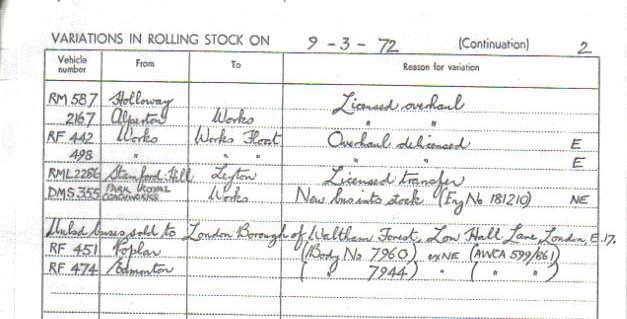 VARIATIONS IN ROLLING STOCK ON 9 - 3 - 72 (Continuation) 2
Vehicle number From To Reason for variation
RM 587 Holloway Licensed overhaul
2167 Alperton Works " "
RF 442 Works Works Float Overhaul delicensed E
498 " " " " " E
RML2286 Stamford Hill Leyton Licensed transfer
DMS 355 PARK ROYAL COACHWORKS Works New bus into stock (Eng No 181210) NE
Unlicd buses sold to London Borough of Waltham Forest, Low Hall Lane, London, E.17.
RF 451 Poplar (Body No 7960) exNE (AWCA 599/661)
RF 474 Edmonton ( " 7944) " ( " " )